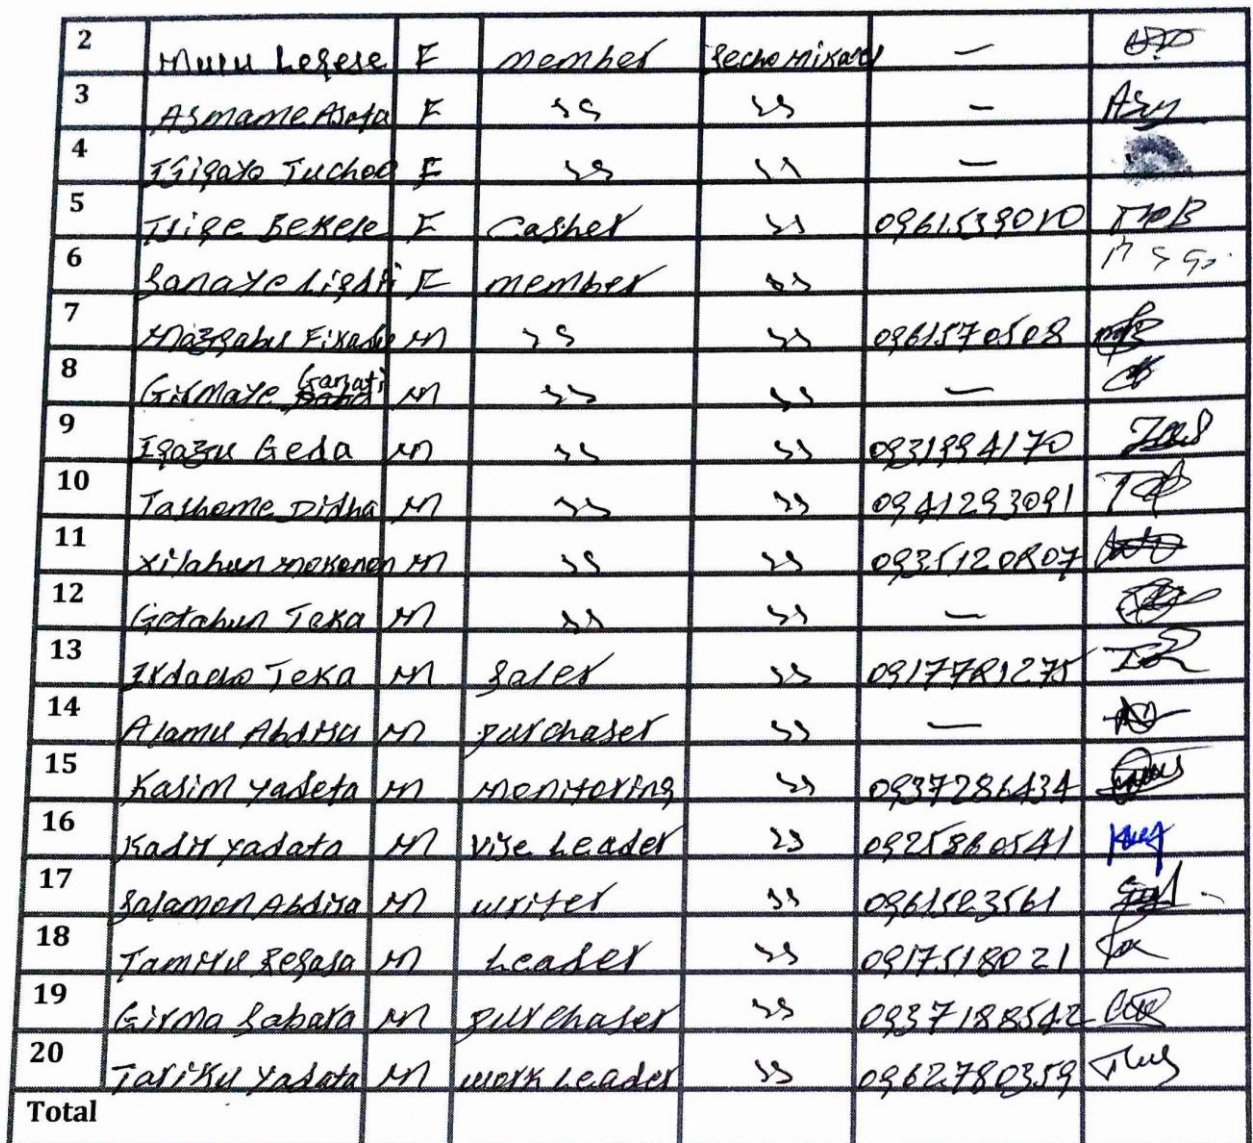 2 Mulu Legese F member Gecho Mikael —
3 Asmame Asefa F ,, ,, — Asm
4 Tsigaye Tuchoo F ,, ,, —
5 Tsige Bekele F Casher ,, 0961539010
6 Sanaye F member ,,
7 Mazgabu Fikadu M ,, ,, 0961570508
8 Girmaye Ganati M ,, ,, —
9 Igazu Geda M ,, ,, 0931994170
10 Tashome Didha M ,, ,, 0941293091
11 Xilahun Mokonen M ,, ,, 0935120807
12 Getahun Teka M ,, ,, —
13 Teka M Saler ,, 0917781275
14 Alamu Abdisa M purchaser ,, —
15 Kasim Yadeta M monitoring ,, 0937286434
16 Kadir Yadata M Vise Leader ,, 0925860541
17 Salamon Abdisa M writer ,, 0961523561
18 Tamiru Regasa M Leader ,, 0917518021
19 Girma Sabara M purchaser ,, 0937188542
20 Tariku Yadata M work Leader ,, 0962780359
Total